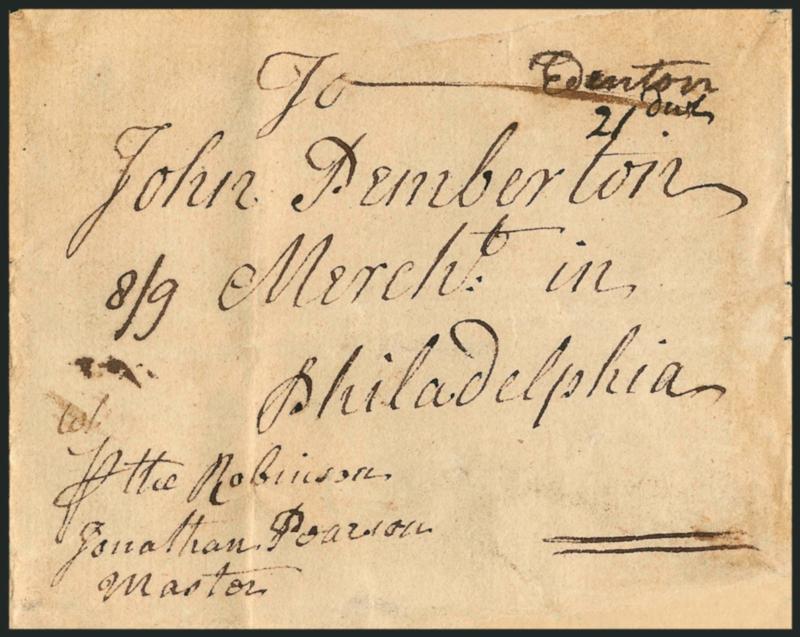 To Edenton
21 dwt
John Pemberton
8/9 Merch.t in
Philadelphia
⅌ the Robinson
Jonathan Pearson
Master